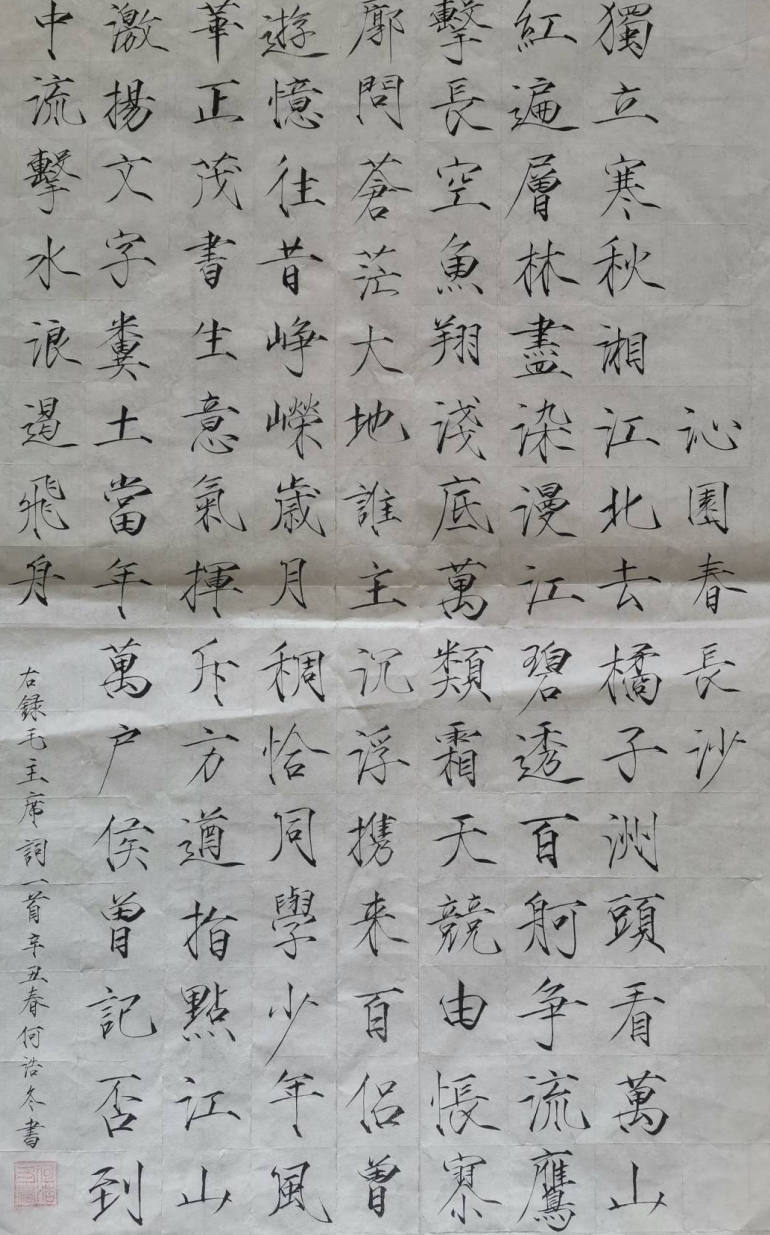 沁園春長沙
獨立寒秋湘江北去橘子洲頭看萬山
紅遍層林盡染漫江碧透百舸争流鷹
擊長空魚翔淺底萬類霜天競由悵寥
廓問蒼茫大地誰主沉浮携来百侣曾
遊憶往昔崢嶸歲月稠恰同學少年風
華正茂書生意氣揮斥方遒指點江山
激揚文字糞土當年萬户侯曾記否到
中流擊水浪遏飛舟
右録毛主席詞一首辛丑春何浩冬書